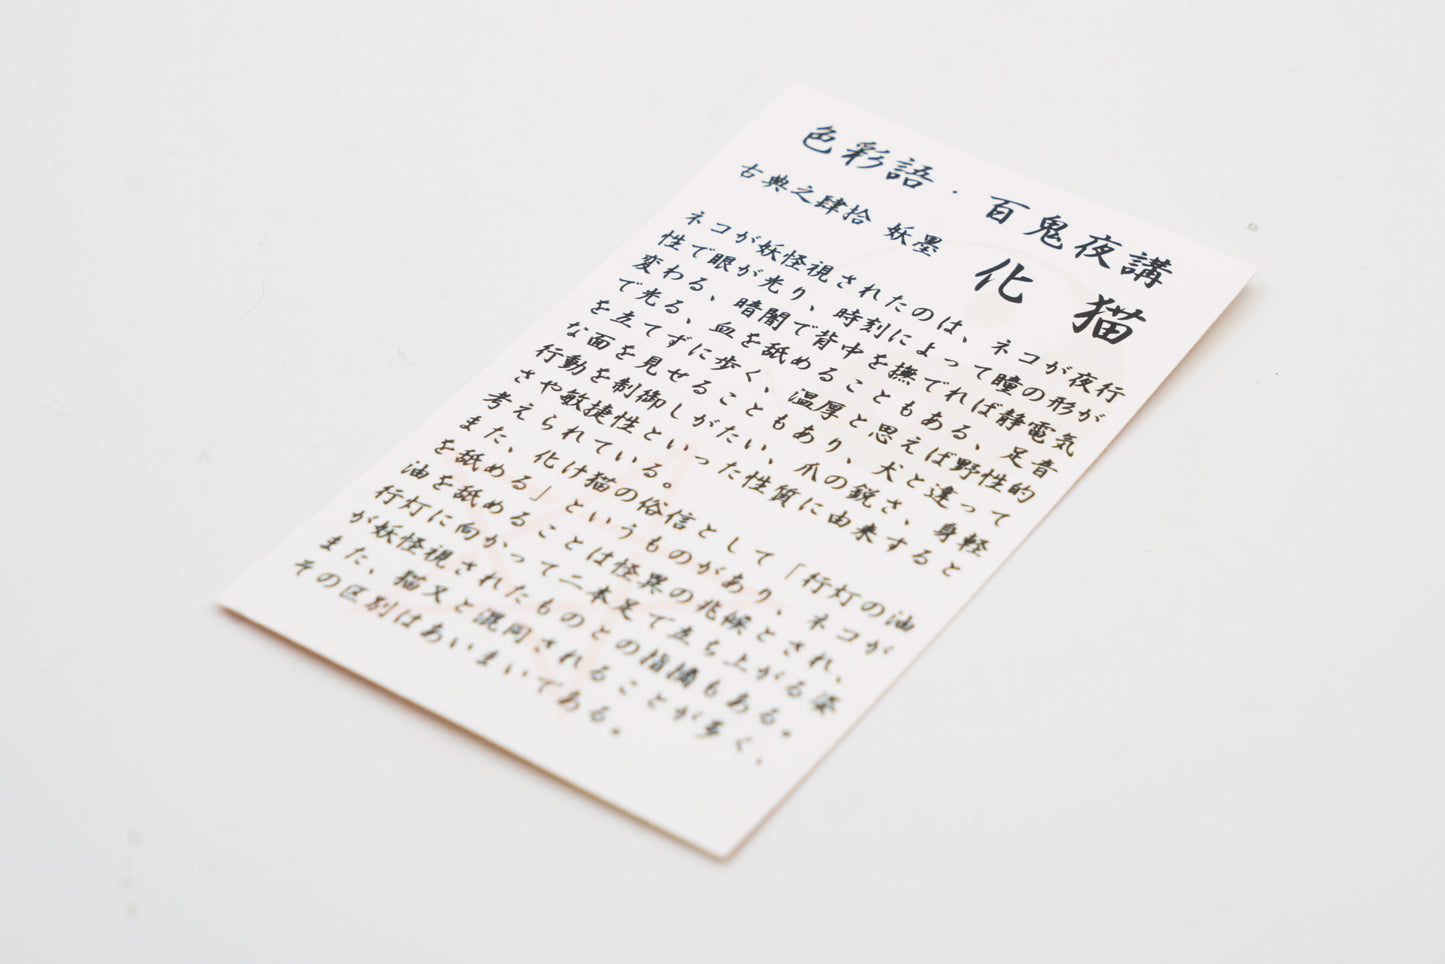 色彩語・百鬼夜講
古典之肆拾 妖墨
化猫
ネコが妖怪視されたのは、ネコが夜行
性で眼が光り、時刻によって瞳の形が
変わる、暗闇で背中を撫でれば静電気
で光る、血を舐めることもある、足音
を立てずに歩く、温厚と思えば野性的
な面を見せることもあり、犬と違って
行動を制御しがたい、爪の鋭さ、身軽
さや敏捷性といった性質に由来すると
考えられている。
また、化け猫の俗信として「行灯の油
を舐める」というものがあり、ネコが
油を舐めることは怪異の兆候とされ、
行灯に向かって二本足で立ち上がる姿
が妖怪視されたものとの指摘もある。
また、猫又と混同されることが多く、
その区別はあいまいである。